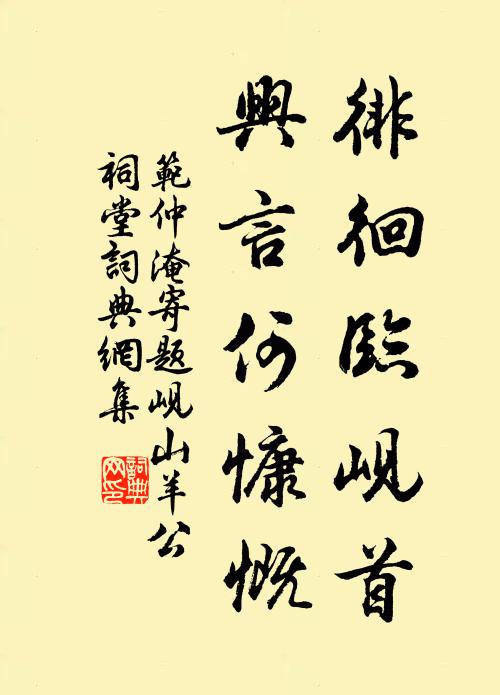 徘徊臨峴首
興言何慷慨
範仲淹寄題峴山羊公
祠堂詞典網集
詞典网印